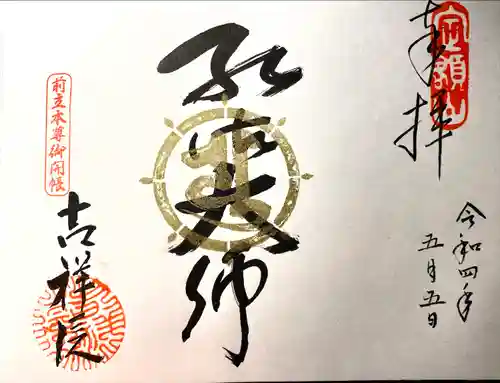 奉拝
令和四年
五月五日
弘法大師
前立本尊御開帳
吉祥院